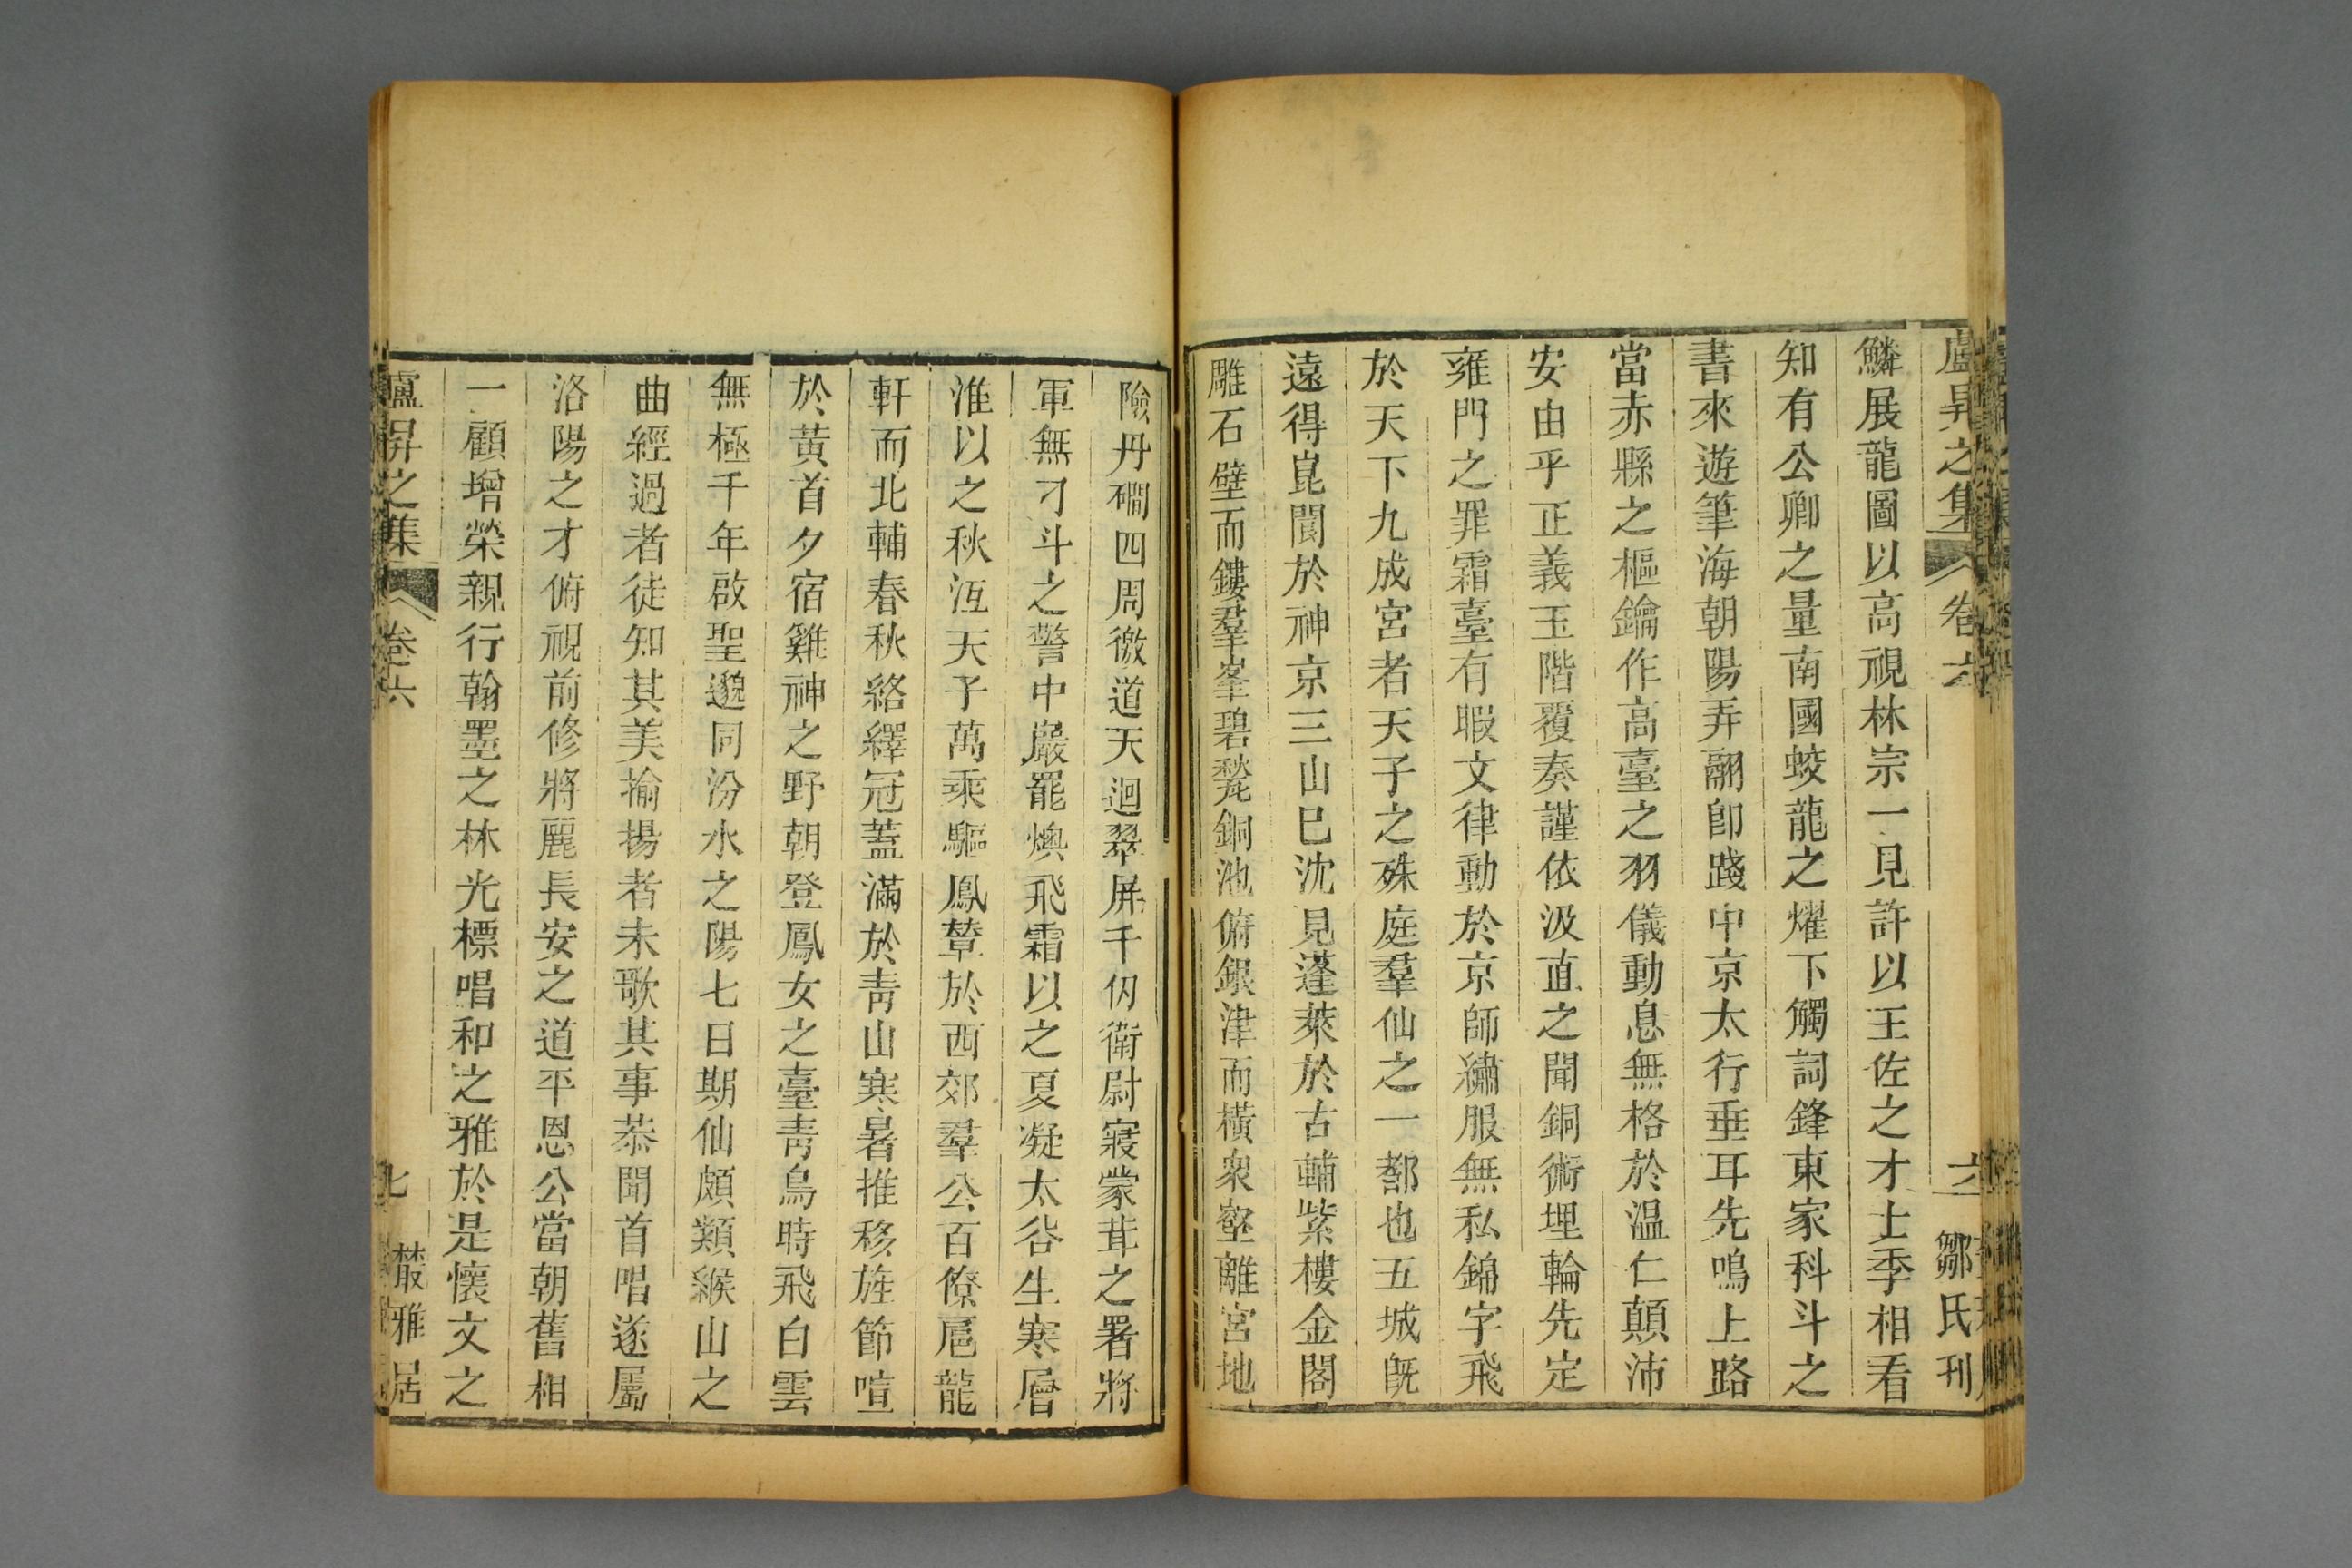 盧昇之集 卷六 六 鄒氏刊
鱗展龍圖以高視林宗一見許以王佐之才士季相看
知有公卿之量南國蛟龍之燿下觸詞鋒東家科斗之
書來遊筆海朝陽弄翮卽踐中京太行垂耳先鳴上路
當赤縣之樞鑰作高臺之羽儀動息無格於温仁顛沛
安由乎正義玉階覆奏謹依汲直之聞銅術埋輪先定
雍門之罪霜臺有暇文律動於京師繡服無私錦字飛
於天下九成宮者天子之殊庭羣仙之一都也五城旣
遠得崑閬於神京三山巳沈見蓬萊於古輔紫樓金閣
雕石壁而鏤羣峯碧甃銅池俯銀津而橫衆壑離宮地
險丹磵四周徼道天迴翠屏千仭衛尉寢蒙茸之署將
軍無刁斗之警中巖罷燠飛霜以之夏凝太谷生寒層
淮以之秋沍天子萬乘驅鳳輦於西郊羣公百僚扈龍
軒而北輔春秋絡繹冠蓋滿於靑山寒暑推移旌節喧
於黃首夕宿雞神之野朝登鳳女之臺靑鳥時飛白雲
無極千年啟聖邈同汾水之陽七日期仙頗類緱山之
曲經過者徒知其美揄揚者未歌其事恭聞首唱遂屬
洛陽之才俯視前修將麗長安之道平恩公當朝舊相
一顧增榮親行翰墨之林光標唱和之雅於是懷文之
盧昇之集 卷六 七 叢雅居